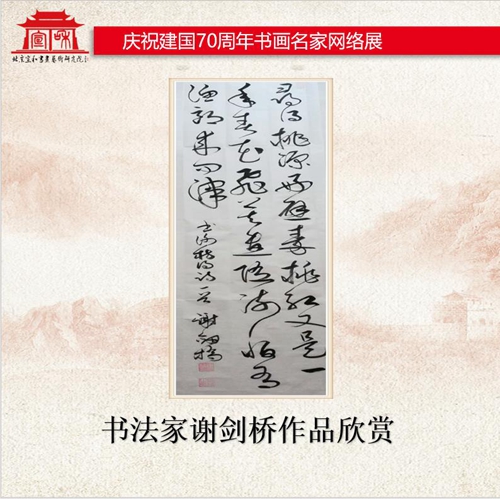 庆祝建国70周年书画名家网络展
宣和
北京宣和书画艺术研究院
寻得桃源好避秦桃红又是一
年春花飞莫遣随流水怕有
渔郎来问津
谢剑桥
书法家谢剑桥作品欣赏